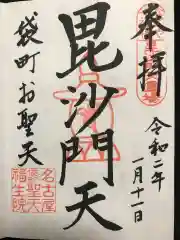 奉拝
令和二年
一月十一日
毘沙門天
袋町お聖天
名古屋
聖天
福生院